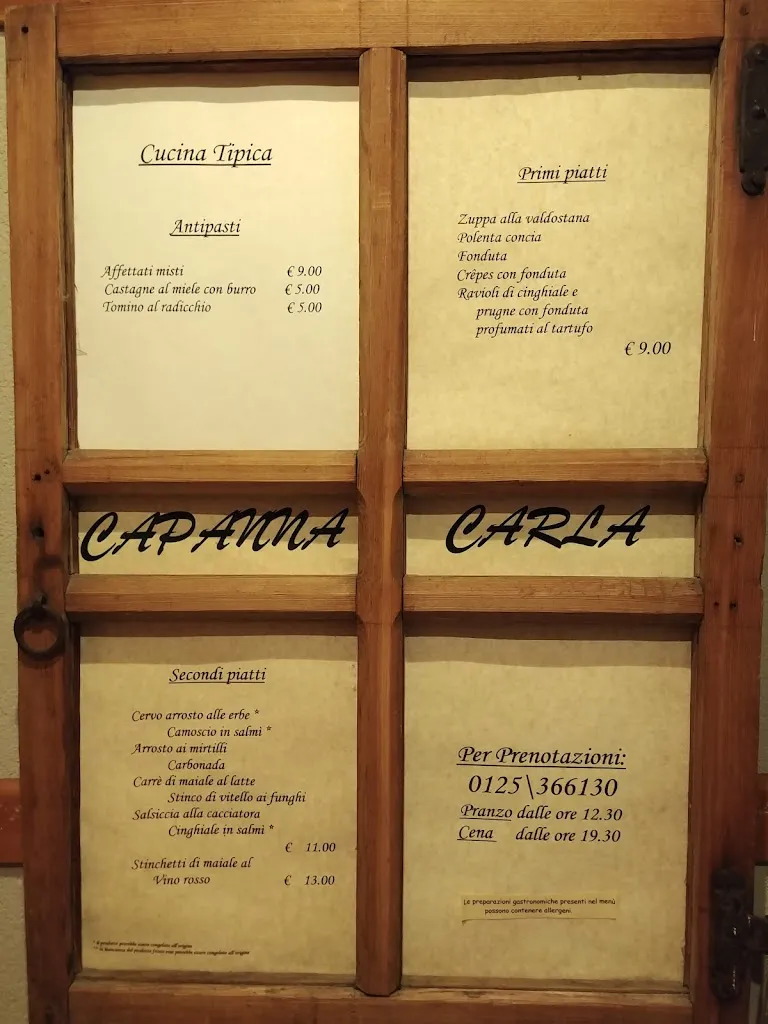 Cucina Tipica
Antipasti
Affettati misti € 9.00
Castagne al miele con burro € 5.00
Tomino al radicchio € 5.00
Primi piatti
Zuppa alla valdostana
Polenta concia
Fonduta
Crêpes con fonduta
Ravioli di cinghiale e
prugne con fonduta
profumati al tartufo
€ 9.00
CAPANNA CARLA
Secondi piatti
Cervo arrosto alle erbe *
Camoscio in salmì *
Arrosto ai mirtilli
Carbonada
Carrè di maiale al latte
Stinco di vitello ai funghi
Salsiccia alla cacciatora
Cinghiale in salmì *
€ 11.00
Stinchetti di maiale al
Vino rosso € 13.00
* il prodotto potrebbe essere congelato all'origine
Per Prenotazioni:
0125\366130
Pranzo dalle ore 12.30
Cena dalle ore 19.30
Le preparazioni gastronomiche presenti nel menù
possono contenere allergeni.